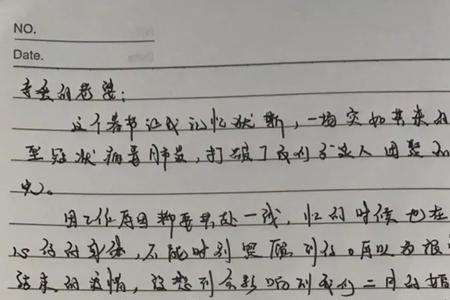 NO.
Date.
亲爱的老婆：
这个春节让我记忆犹新，一场突如其来的
冠状病毒肺炎，打破了我们家人团聚的
因工作原因都要异处一线，忙的时候也在
心你的身体，不能时刻照顾到你。原以为很
结束的疫情，没想到会影响到我们二月的婚